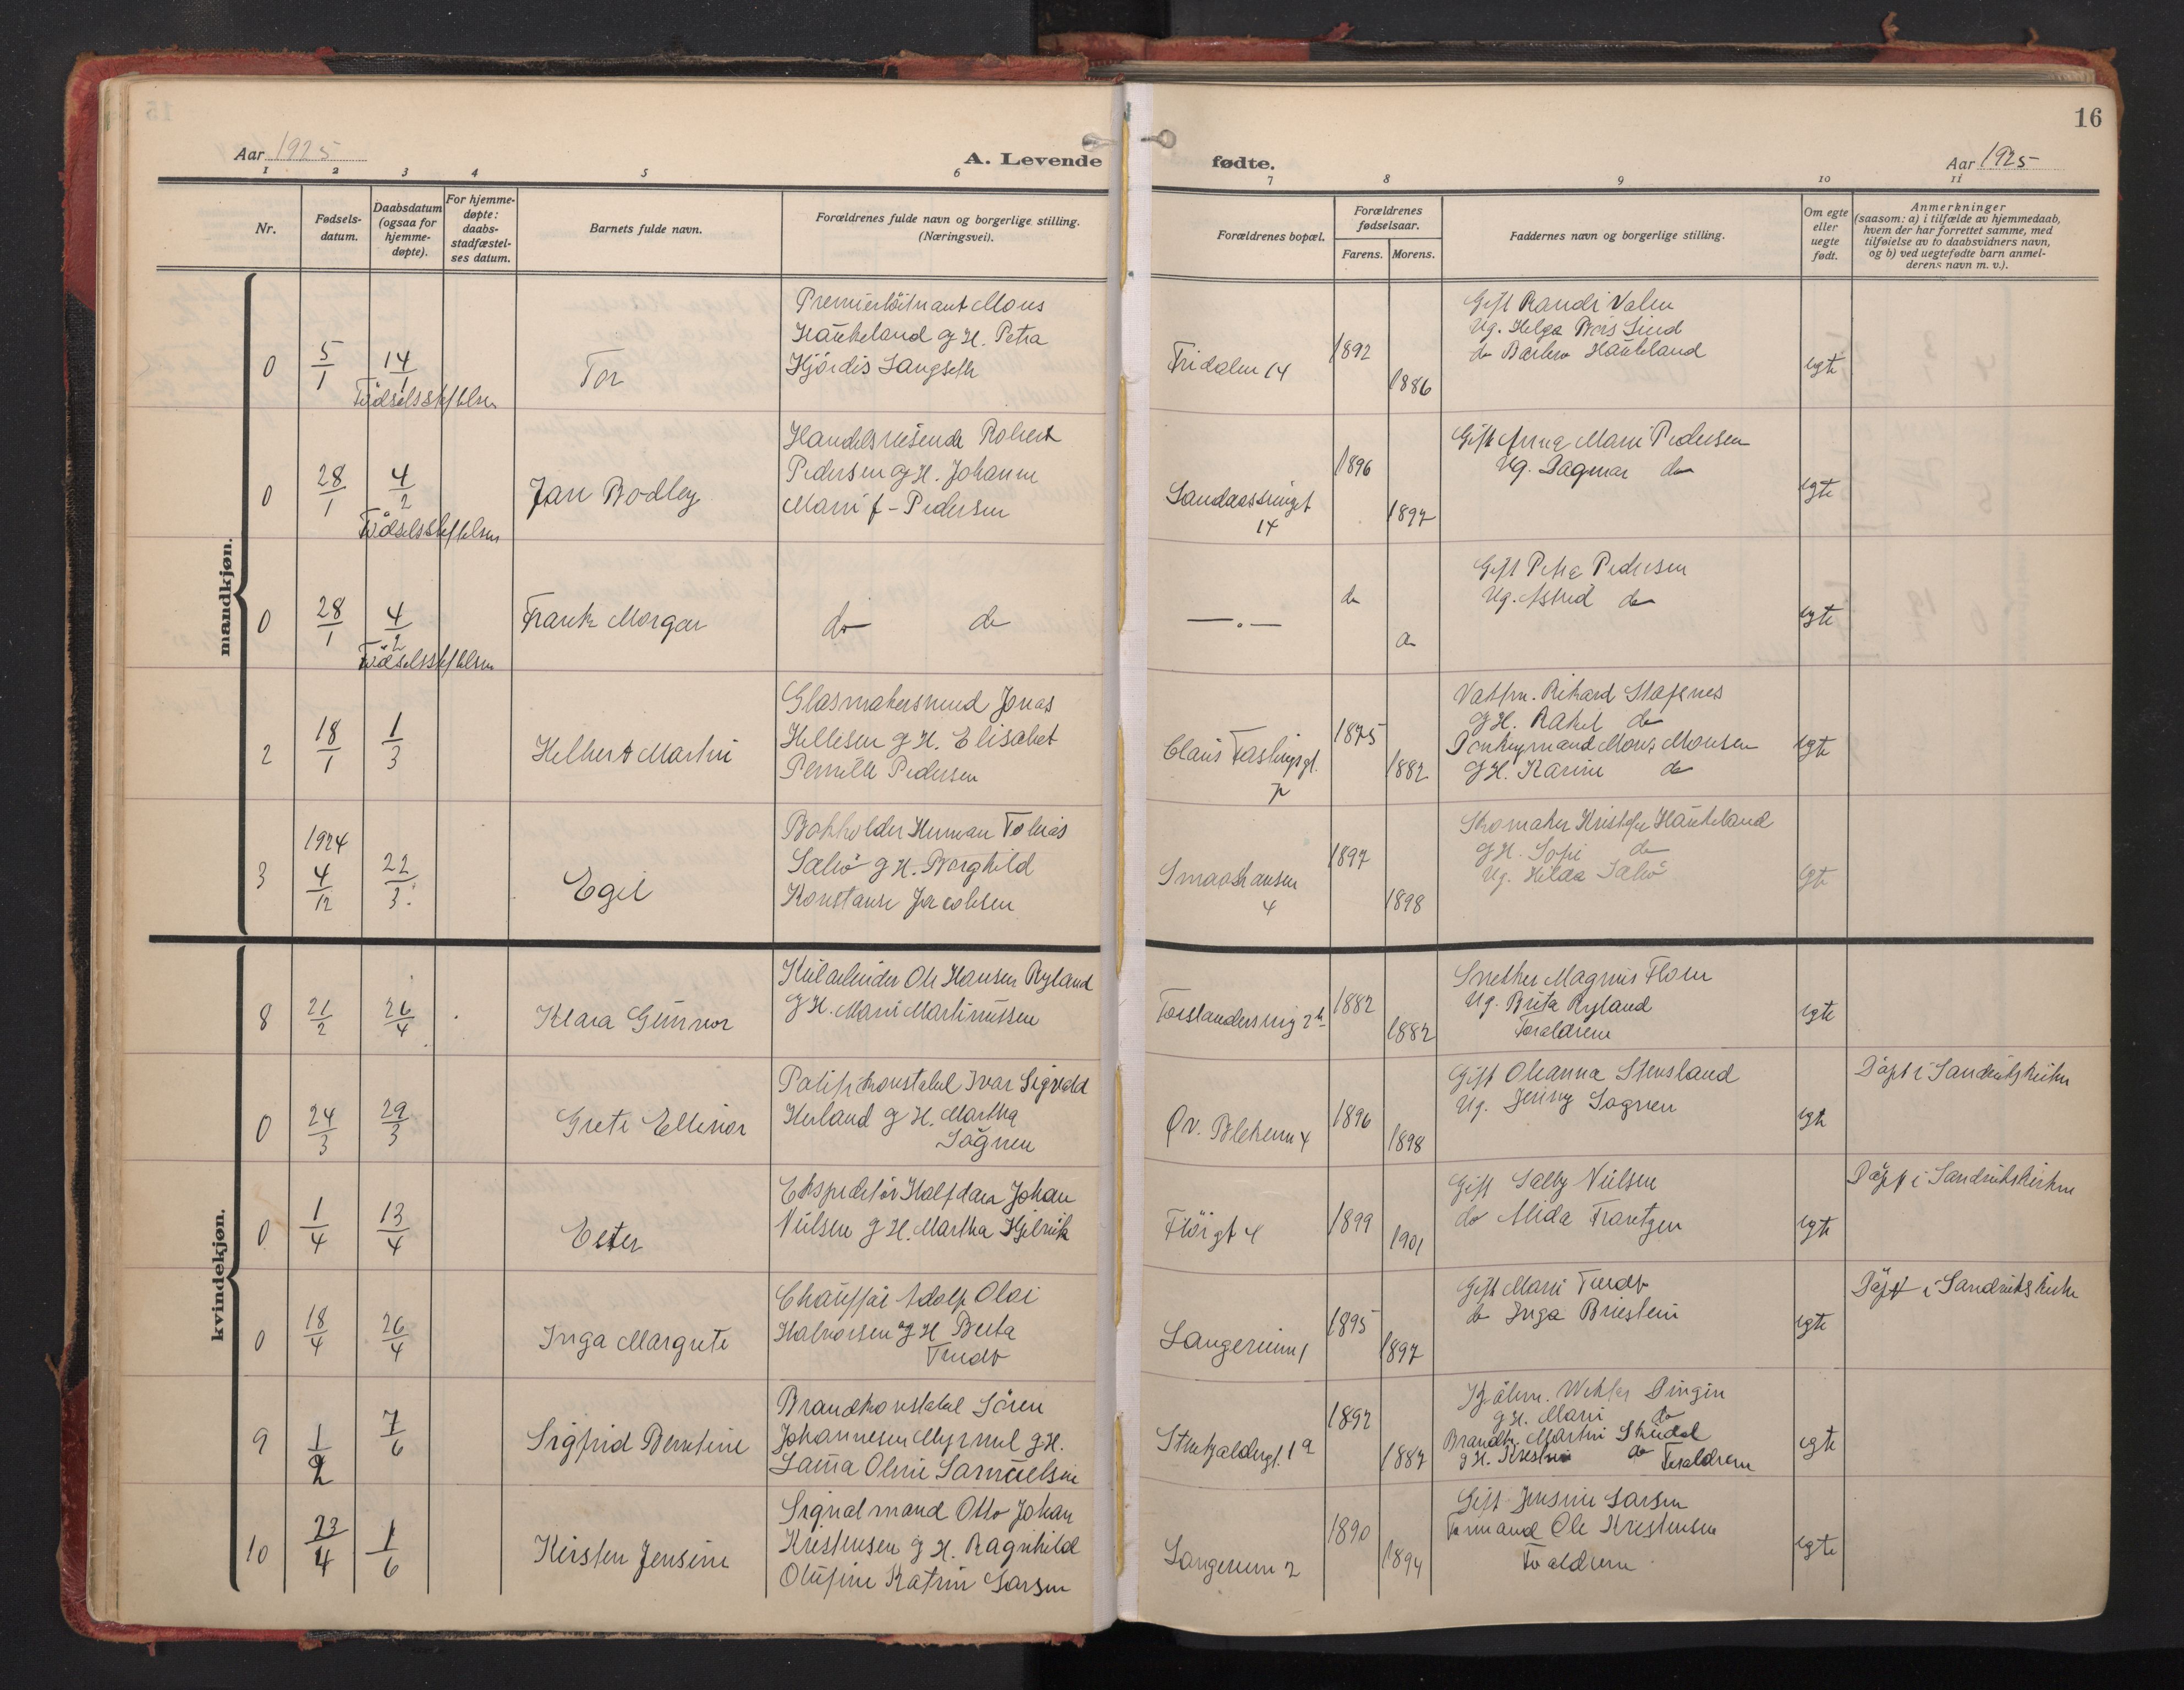 15
16
Aar 1925
A. Levende
fødte.
Aar 1925
1 2 3 4 5 6
7 8 9 10 11
Nr.
Fødsels-
datum.
Daabsdatum
(ogsaa for
hjemme-
døpte).
For hjemme-
døpte:
daabs-
stadfæstel-
ses datum.
Barnets fulde navn.
Forældrenes fulde navn og borgerlige stilling.
(Næringsvei).
Forældrenes bopæl.
Forældrenes
fødselsaar.
Farens. Morens.
Faddernes navn og borgerlige stilling.
Om egte
eller
uegte
født.
Anmerkninger
(saasom: a) i tilfælde av hjemmedaab,
hvem der har forrettet samme, med
tilføielse av to daabsvidners navn,
og b) ved uegtefødte barn anmel-
derens navn m. v.).
mandkjøn.
0 5/1 14/1
Tor
Premierløitnant Mons
Haukeland g H. Petra
Hjördis Langseth
Fridalen 14
1892
1886
Gift Randi Valen
Ug. Helga Lind
do Haukeland
egte
0 28/1 4/2
Jan Bodley
Handelsreisende Robert
Pedersen g H. Johanne
Marie f - Pedersen
14
1896
1897
Gift Anna Marie Pedersen
Ug. Dagmar do
egte
0 28/1 4/2
Frank Morgan
do do
— . —
do
do
Gift Petra Pedersen
Ug. Astrid do
egte
2 18/1 1/3
Helbert Martin
Glasmakersvend Jonas
Hellesen g H. Elisabet
Pernille Pedersen
Claus
1875
1882
Rikard Stapnes
g H. Rakel do
Mons Monsen
g H. Karine do
egte
3 1924 4/12 22/3
Egil
Bokholder Herman Tobias
Sælø g H. Borghild
Konstanse Jacobsen
4
1897
1898
Skomaker Kristofer Haukeland
g H. Sofie do
Ug. Hilda Sælø
egte
kvindekjøn.
8 21/2 26/4
Klara Gunvor
Ole Hansen Ryland
g H. Marie Martinussen
1882
1882
Magnus
Ug. Brita Ryland
Foraldrene
egte
0 24/3 29/3
Grete Ellinor
Politikonstabel Ivar Sigvald
g H. Martha
Sögnen
Øv. Blekevei 4
1896
1898
Gift Oleanna Stensland
Ug. Jenny Sognen
egte
Döpt i Sandvikskirken
0 1/4 13/4
Ester
Ekspeditör Halfdan Johan
Nielsen g H. Martha
Flöigt 4
1899
1901
Gift Salby Nielsen
do Alida Frantzen
egte
Döpt i Sandvikskirken
0 18/4 26/4
Inga Margrete
Chauffør Adolf Olai
Halvorsen g H Berta
Langerinen 1
1895
1897
Gift Marie
do Inga
egte
Döpt i Sandvikskirken
9 1/2 7/6
Sigfrid Berntine
Brandkonstabel Sören
Johannesen Myrmel g H.
Laura Oline Samuelsen
1 a
1892
1887
g H. Marie do
Martin
g H. do Foraldrene
egte
10 23/4 1/6
Kirsten Jensine
Signalmand Otto Johan
Kristensen g H. Ragnhild
Olufine Katrine Larsen
Langerinen 2
1890
1894
Gift Jensine Larsen
Ole Kristensen
Foraldrene
egte